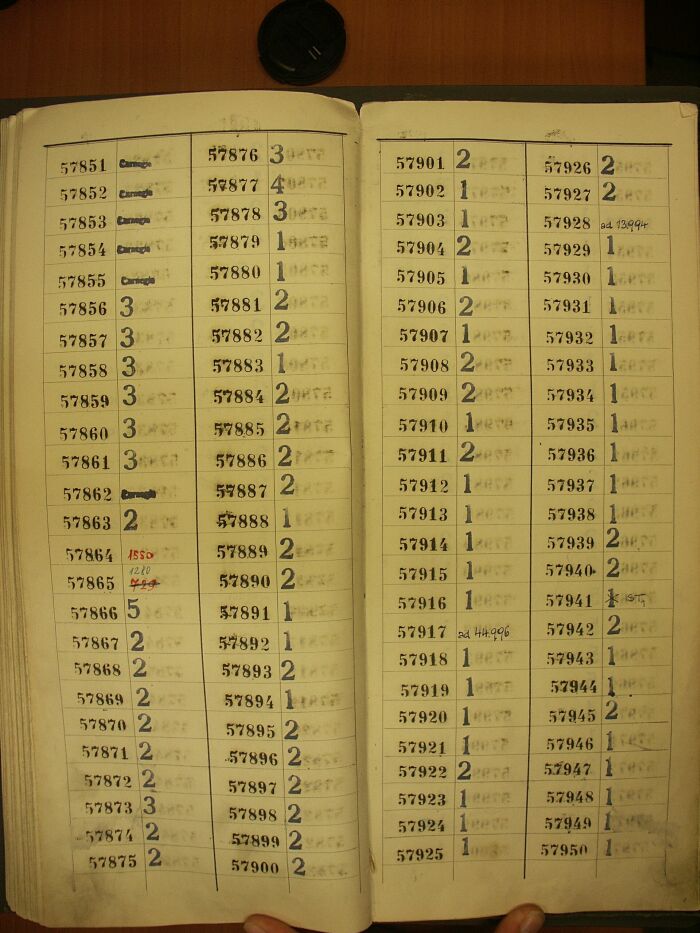 57851 Carnegie
57852 Carnegie
57853 Carnegie
57854 Carnegie
57855 Carnegie
57856 3
57857 3
57858 3
57859 3
57860 3
57861 3
57862 Carnegie
57863 2
57864 1550
57865 1280
57866 5
57867 2
57868 2
57869 2
57870 2
57871 2
57872 2
57873 3
57874 2
57875 2
57876 3
57877 4
57878 3
57879 1
57880 1
57881 2
57882 2
57883 1
57884 2
57885 2
57886 2
57887 2
57888 1
57889 2
57890 2
57891 1
57892 1
57893 2
57894 1
57895 2
57896 2
57897 2
57898 2
57899 2
57900 2
57901 2
57902 1
57903 1
57904 2
57905 1
57906 2
57907 1
57908 2
57909 2
57910 1
57911 2
57912 1
57913 1
57914 1
57915 1
57916 1
57917 ad 44.996
57918 1
57919 1
57920 1
57921 1
57922 2
57923 1
57924 1
57925 1
57926 2
57927 2
57928 ad 13.994
57929 1
57930 1
57931 1
57932 1
57933 1
57934 1
57935 1
57936 1
57937 1
57938 1
57939 2
57940 2
57941 1
57942 2
57943 1
57944 1
57945 2
57946 1
57947 1
57948 1
57949 1
57950 1